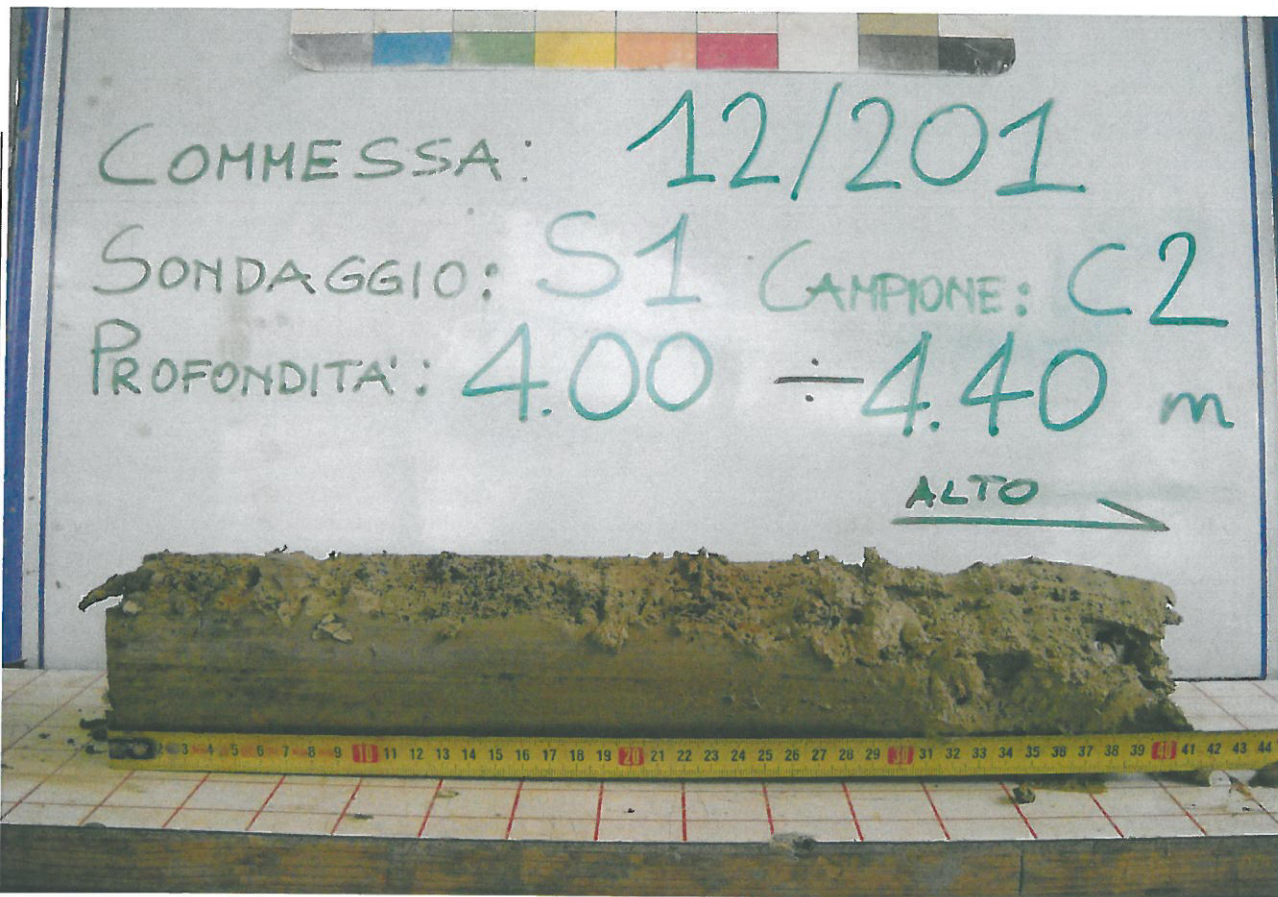 COMMESSA: 12/201
SONDAGGIO: S1 CAMPIONE: C2
PROFONDITA': 4.00 ÷ 4.40 m
ALTO
2 3 4 5 6 7 8 9 10 11 12 13 14 15 16 17 18 19 20 21 22 23 24 25 26 27 28 29 30 31 32 33 34 35 36 37 38 39 40 41 42 43 44